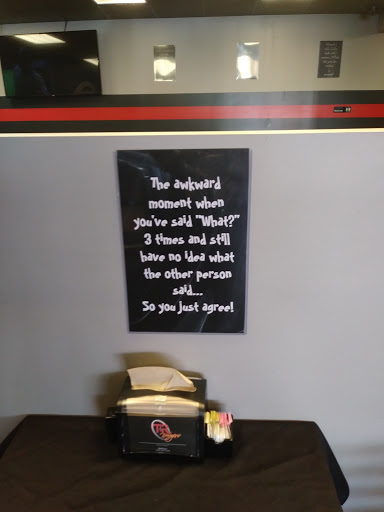 The awkward
moment when
you've said "What?"
3 times and still
have no idea what
the other person
said...
So you just agree!